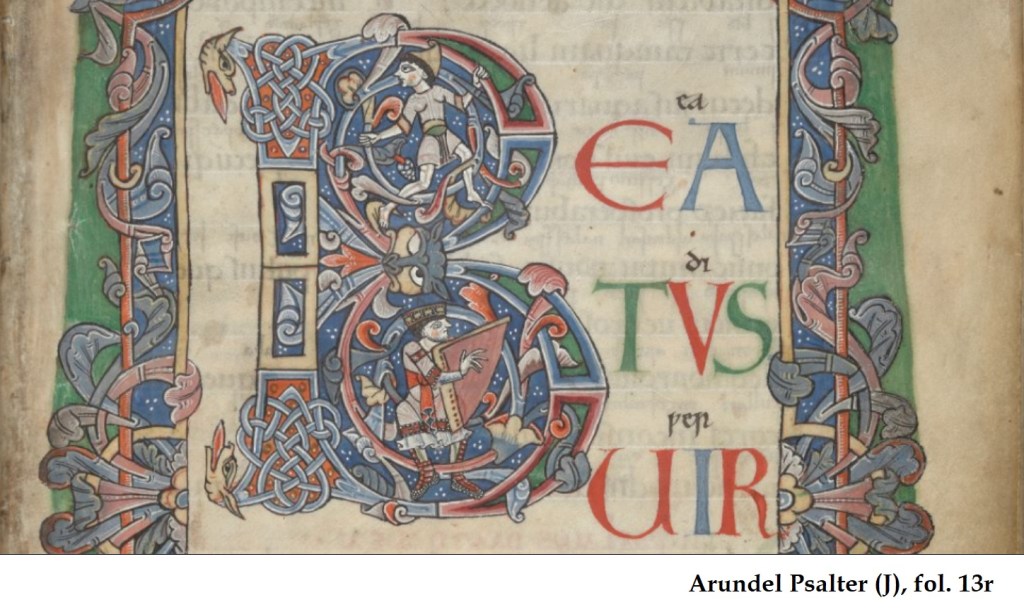 ea
BEA
di
TVS
ƿer
UIR
Arundel Psalter (J), fol. 13r